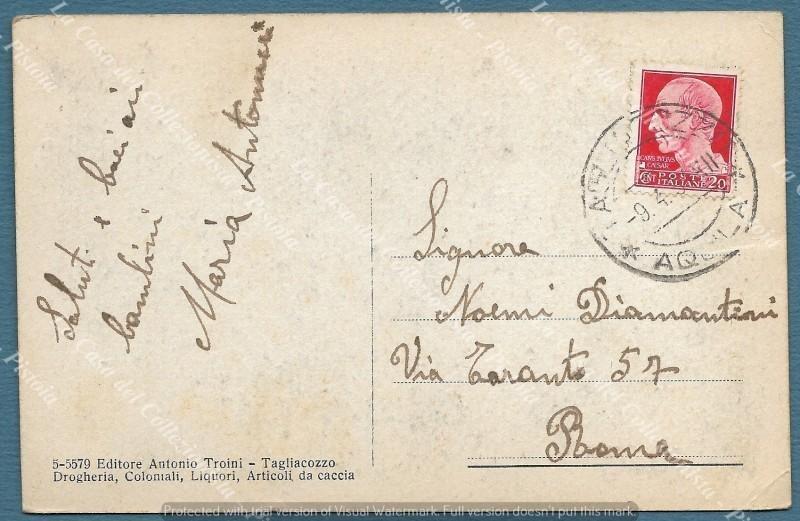 Saluti e bacioni
bambini
Maria Antonucci
CAIVS IVLIVS
CAESAR
CENT. POSTE 20
ITALIANE
AQUILA
Signora
Noemi Diamantini
Via Taranto 57
Roma
5-5579 Editore Antonio Troini - Tagliacozzo
Drogheria, Coloniali, Liquori, Articoli da caccia
La Casa del Collezionista - Pistoia
Protected with trial version of Visual Watermark. Full version doesn't put this mark.